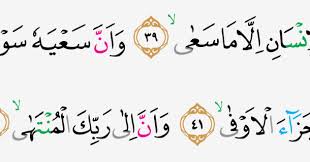 نْسَانِ اِلَّا مَا سَعٰىۙ ٣٩ وَاَنَّ سَعْيَهٗ سَوْ
جَزَاۤءَ الْاَوْفٰىۙ ٤١ وَاَنَّ اِلٰى رَبِّكَ الْمُنْتَهٰىۙ